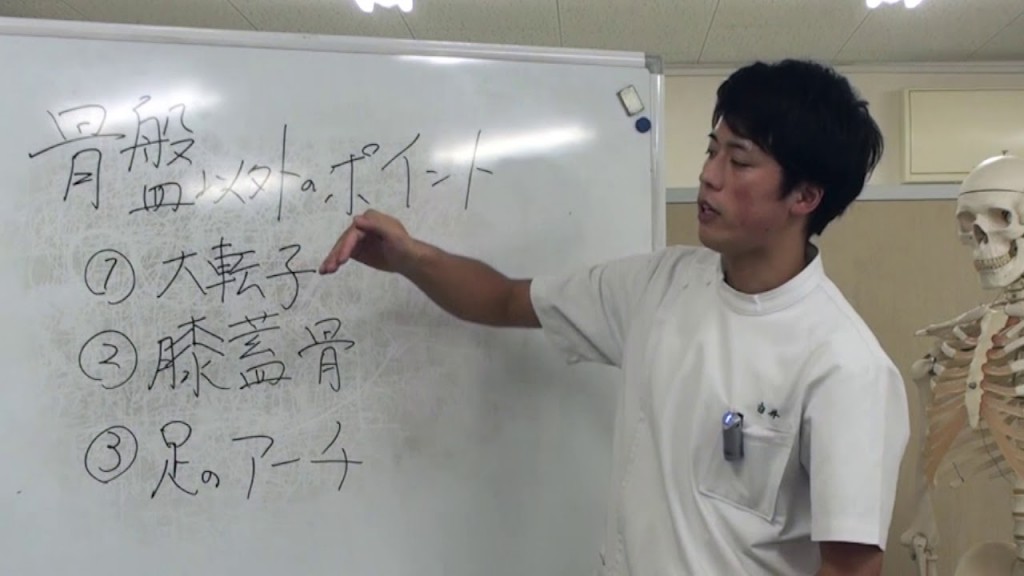 骨盤以外のポイント
① 大転子
② 膝蓋骨
③ 足のアーチ